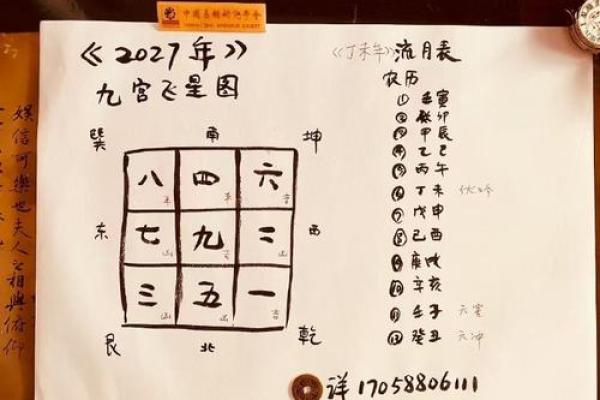 中國易經研究學會
《2027年》
九宫飞星图
巽 南 坤
八 四 六
东 七 九 二 西
三 五 一
艮 北 乾
《丁未年》流月表
农历
① 壬寅
② 癸卯
③ 甲辰
④ 乙巳
⑤ 丙午
⑥ 丁未 伏吟
⑦ 戊申
⑧ 己酉
⑨ 庚戌
⑩ 辛亥
⑪ 壬子
⑫ 癸丑 六冲
详17058806111
娱信可樂也夫人之相與俯仰